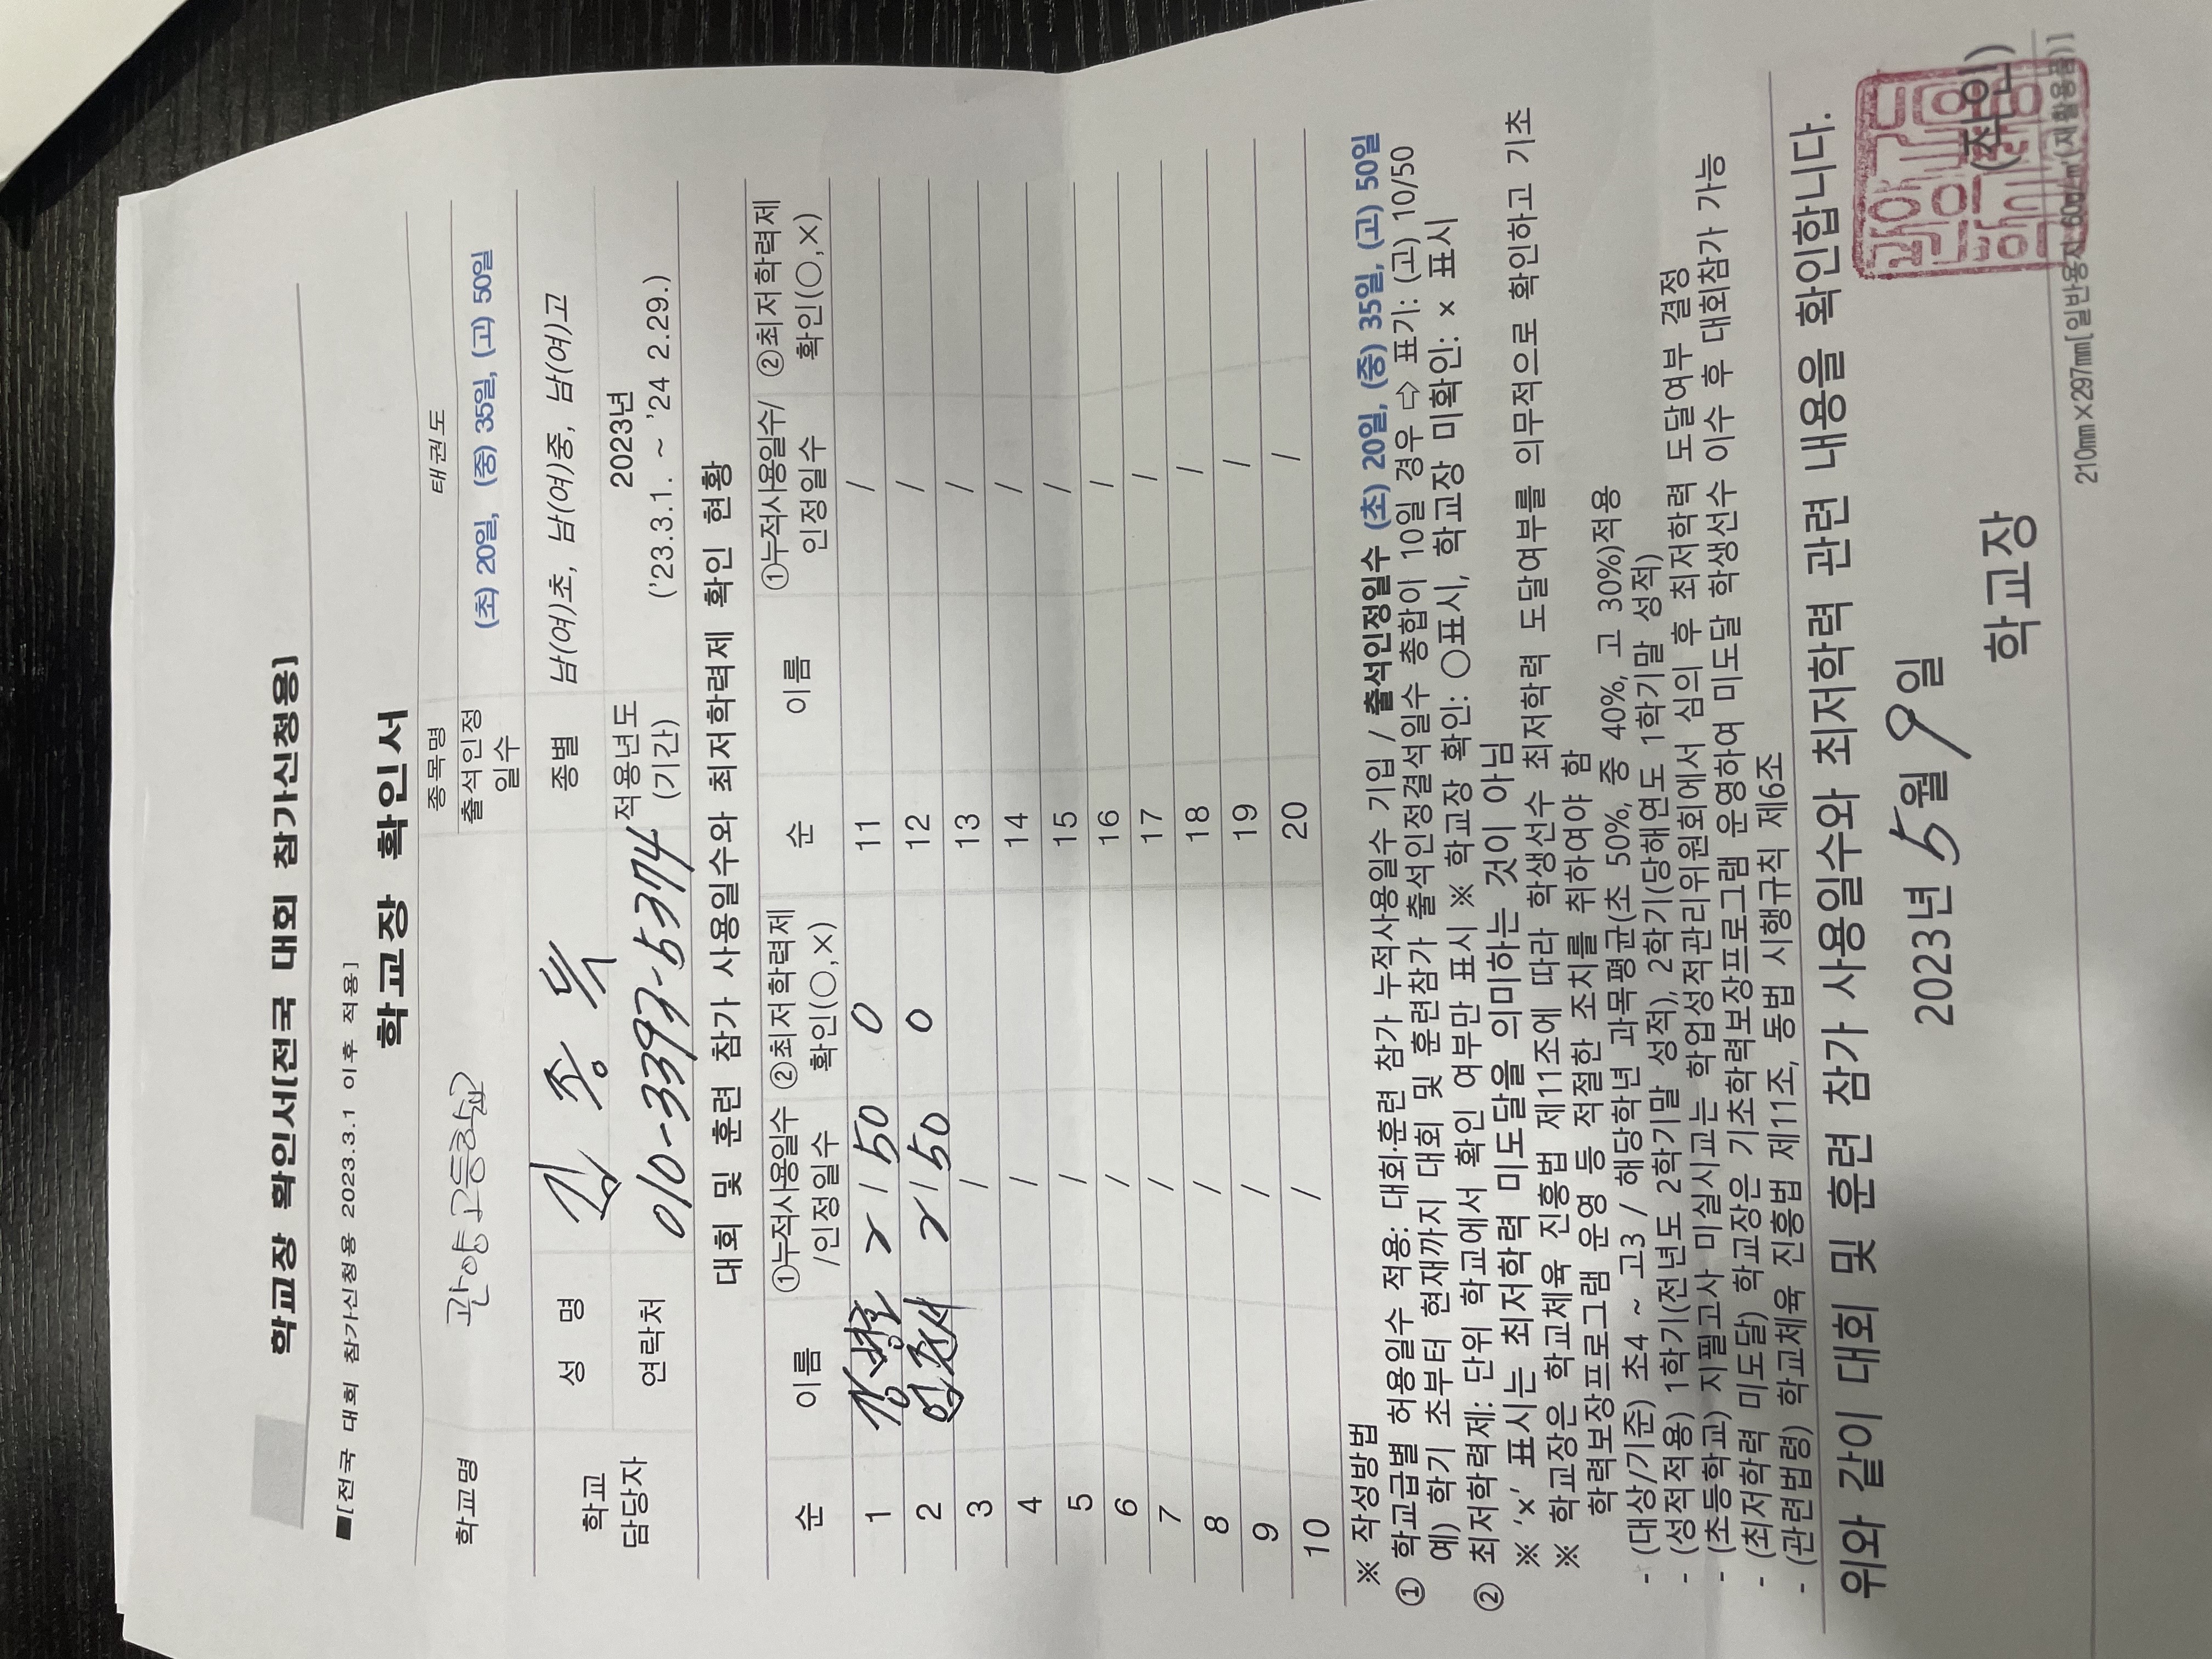 학교장 확인서[전국 대회 참가신청용]
■[전국 대회 참가신청용 2023.3.1 이후 적용]
학교장 확인서
학교명 관양고등학교 종목명 태권도
출석인정 일수 (초) 20일, (중) 35일, (고) 50일
학교 담당자 성 명 김종 종별 남(여)초, 남(여)중, 남(여)고
연락처 010-3397-5374 적용년도 (기간) 2023년 ('23.3.1. ~ '24 2.29.)
대회 및 훈련 참가 사용일수와 최저학력제 확인 현황
순 이름 ①누적사용일수 /인정일수 ②최저학력제 확인(○,×) 순 이름 ①누적사용일수/ 인정일수 ②최저학력제 확인(○,×)
1 / 50 0 11 /
2 / 50 0 12 /
3 / 13 /
4 / 14 /
5 / 15 /
6 / 16 /
7 / 17 /
8 / 18 /
9 / 19 /
10 / 20 /
※ 작성방법
① 학교급별 허용일수 적용: 대회·훈련 참가 누적사용일수 기입 / 출석인정일수 (초) 20일, (중) 35일, (고) 50일
예) 학기 초부터 현재까지 대회 및 훈련참가 출석인정결석일수 총합이 10일 경우 ⇨ 표기: (고) 10/50
② 최저학력제: 단위 학교에서 확인 여부만 표시 ※ 학교장 확인: ○표시, 학교장 미확인: × 표시
※ '×' 표시는 최저학력 미도달을 의미하는 것이 아님
※ 학교장은 학교체육 진흥법 제11조에 따라 학생선수 최저학력 도달여부를 의무적으로 확인하고 기초
학력보장프로그램 운영 등 적절한 조치를 취하여야 함
- (대상/기준) 초4 ~ 고3 / 해당학년 과목평균(초 50%, 중 40%, 고 30%)적용
- (성적적용) 1학기(전년도 2학기말 성적), 2학기(당해연도 1학기말 성적)
- (초등학교) 지필고사 미실시교는 학업성적관리위원회에서 심의 후 최저학력 도달여부 결정
- (최저학력 미도달) 학교장은 기초학력보장프로그램 운영하여 미도달 학생선수 이수 후 대회참가 가능
- (관련법령) 학교체육 진흥법 제11조, 동법 시행규칙 제6조
위와 같이 대회 및 훈련 참가 사용일수와 최저학력 관련 내용을 확인합니다.
2023년 5월 9일
학교장 (직인)
210㎜×297㎜[일반용지 60g/㎡(재활용품)]